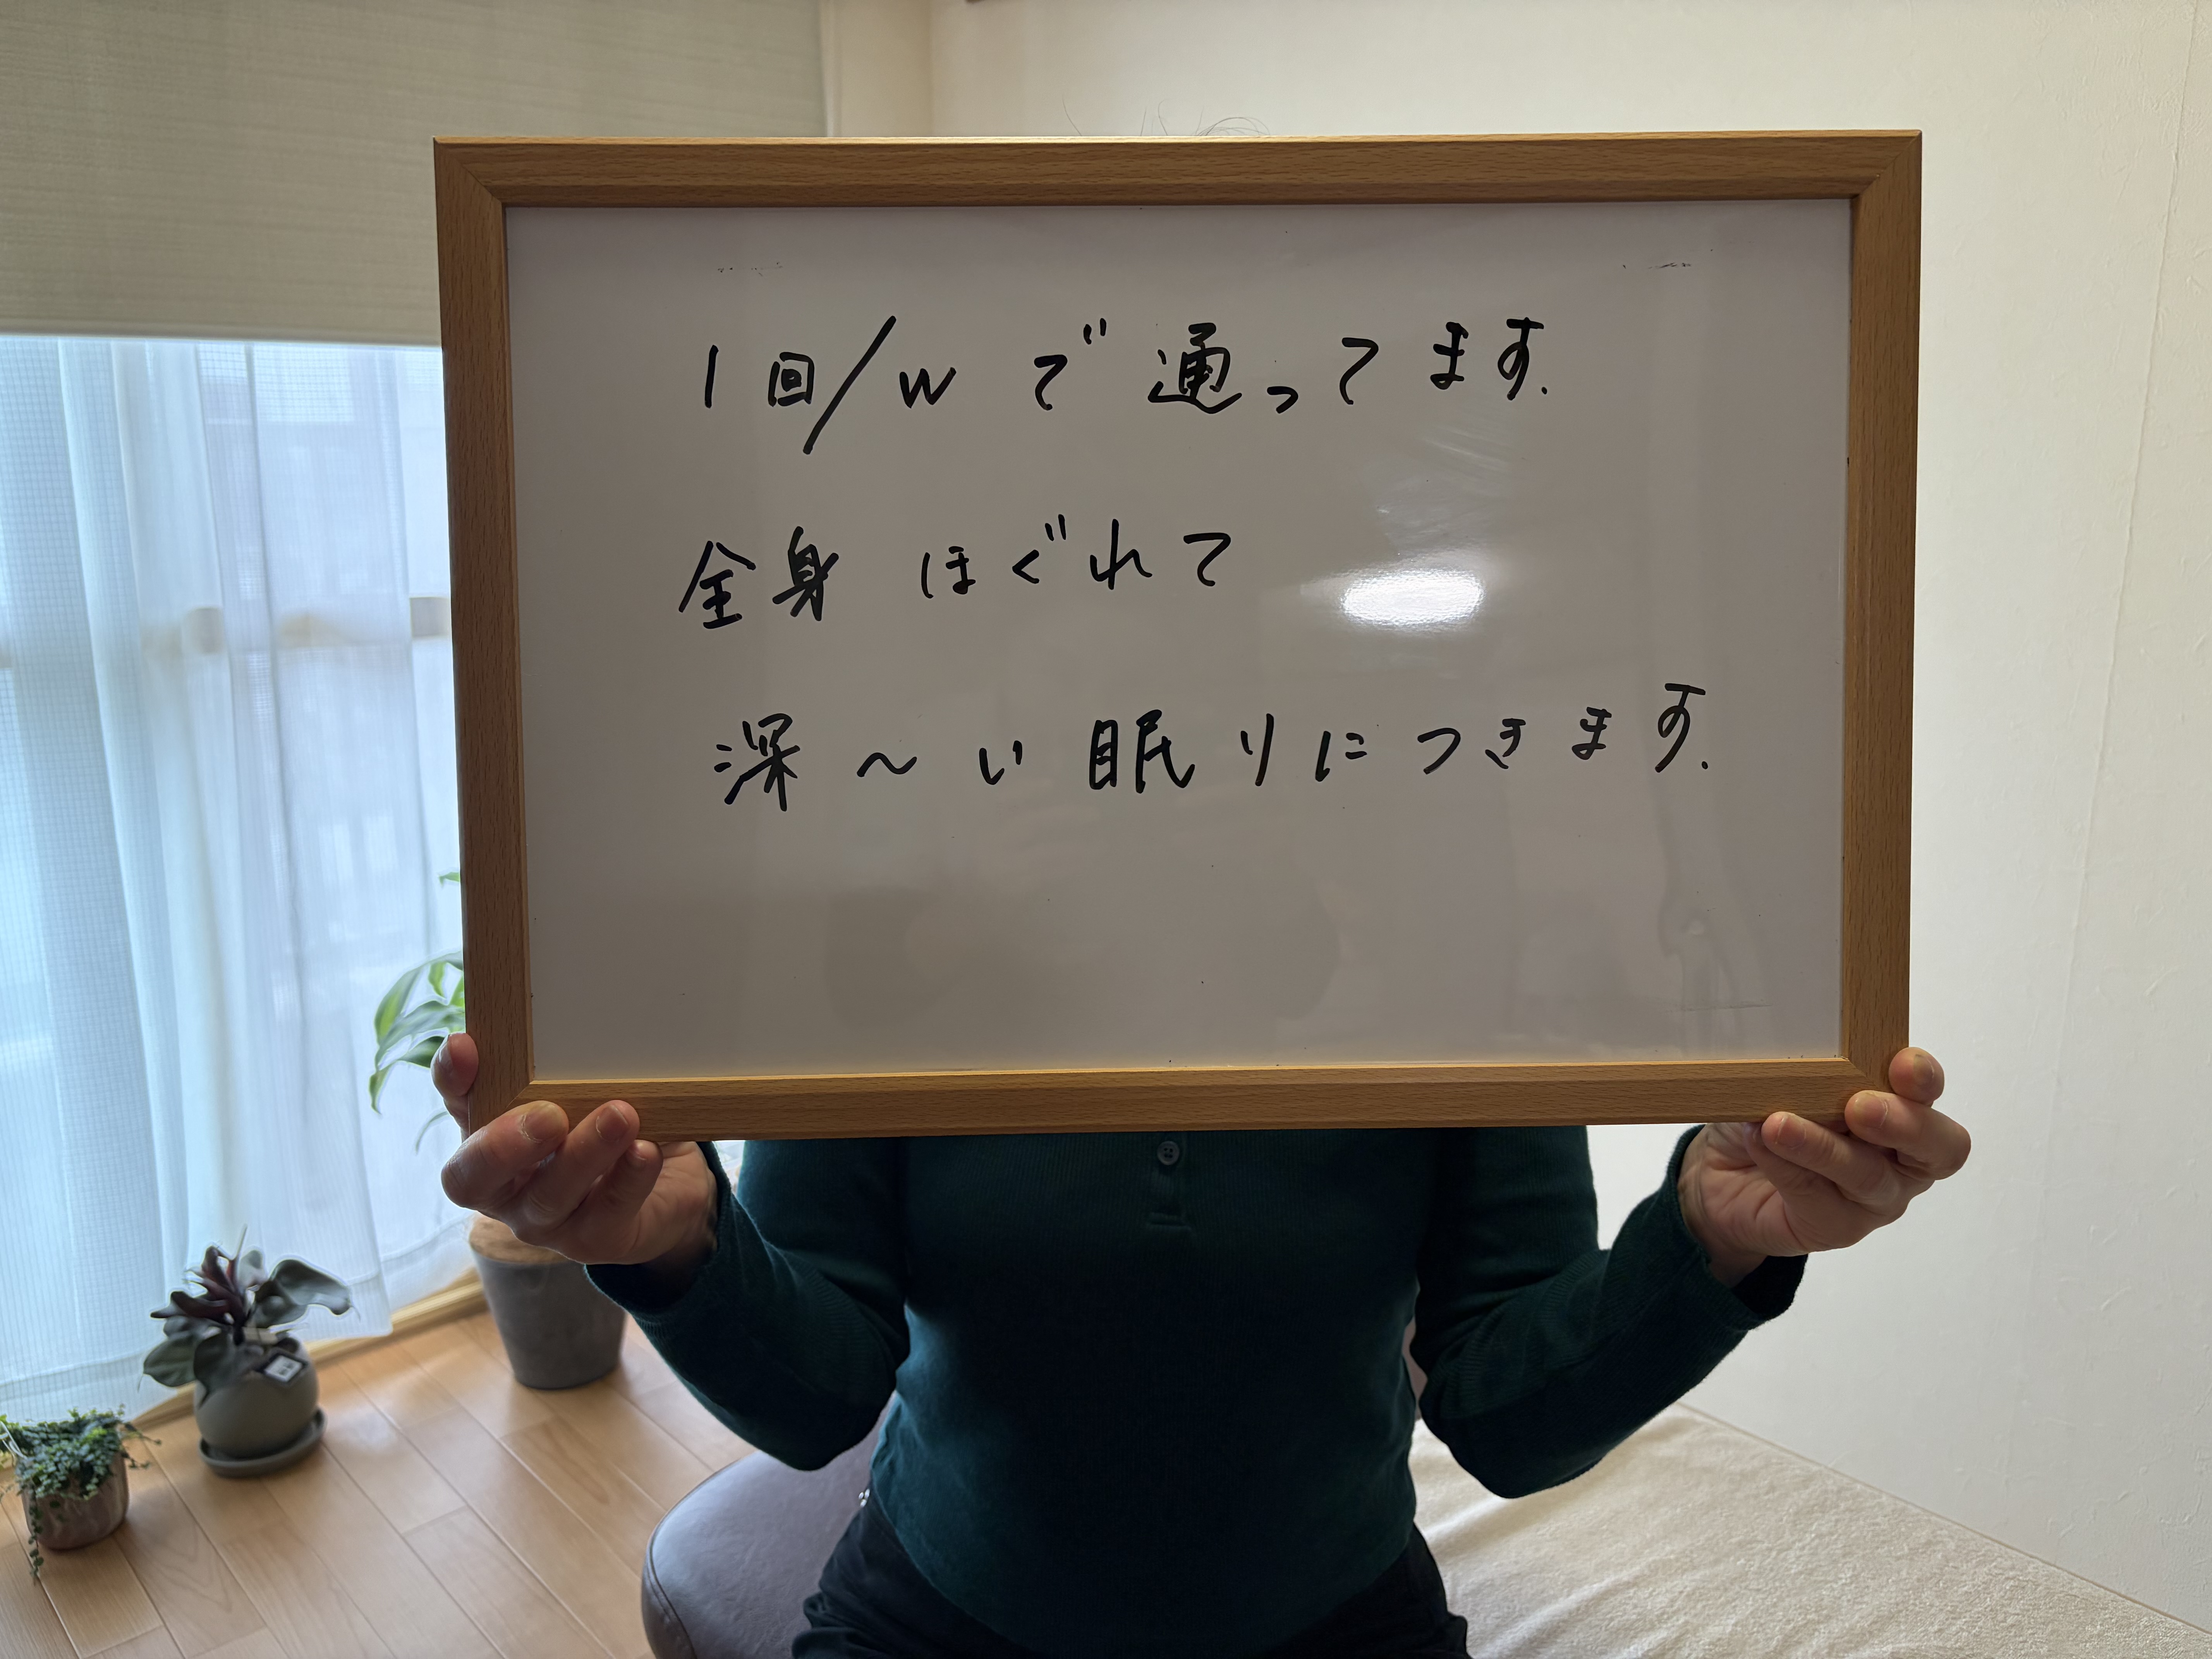 1回/wで通ってます.
全身ほぐれて
深〜い眠りにつきます.